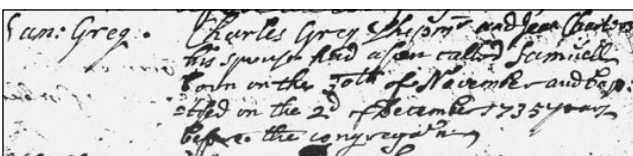 Sam: Greg. Charles Greg Shipmr and Jean Charters
his spouse had a son called Samuell
born on the 30th of November and bap-
-tized on the 2d of December 1735 years
before the congregan